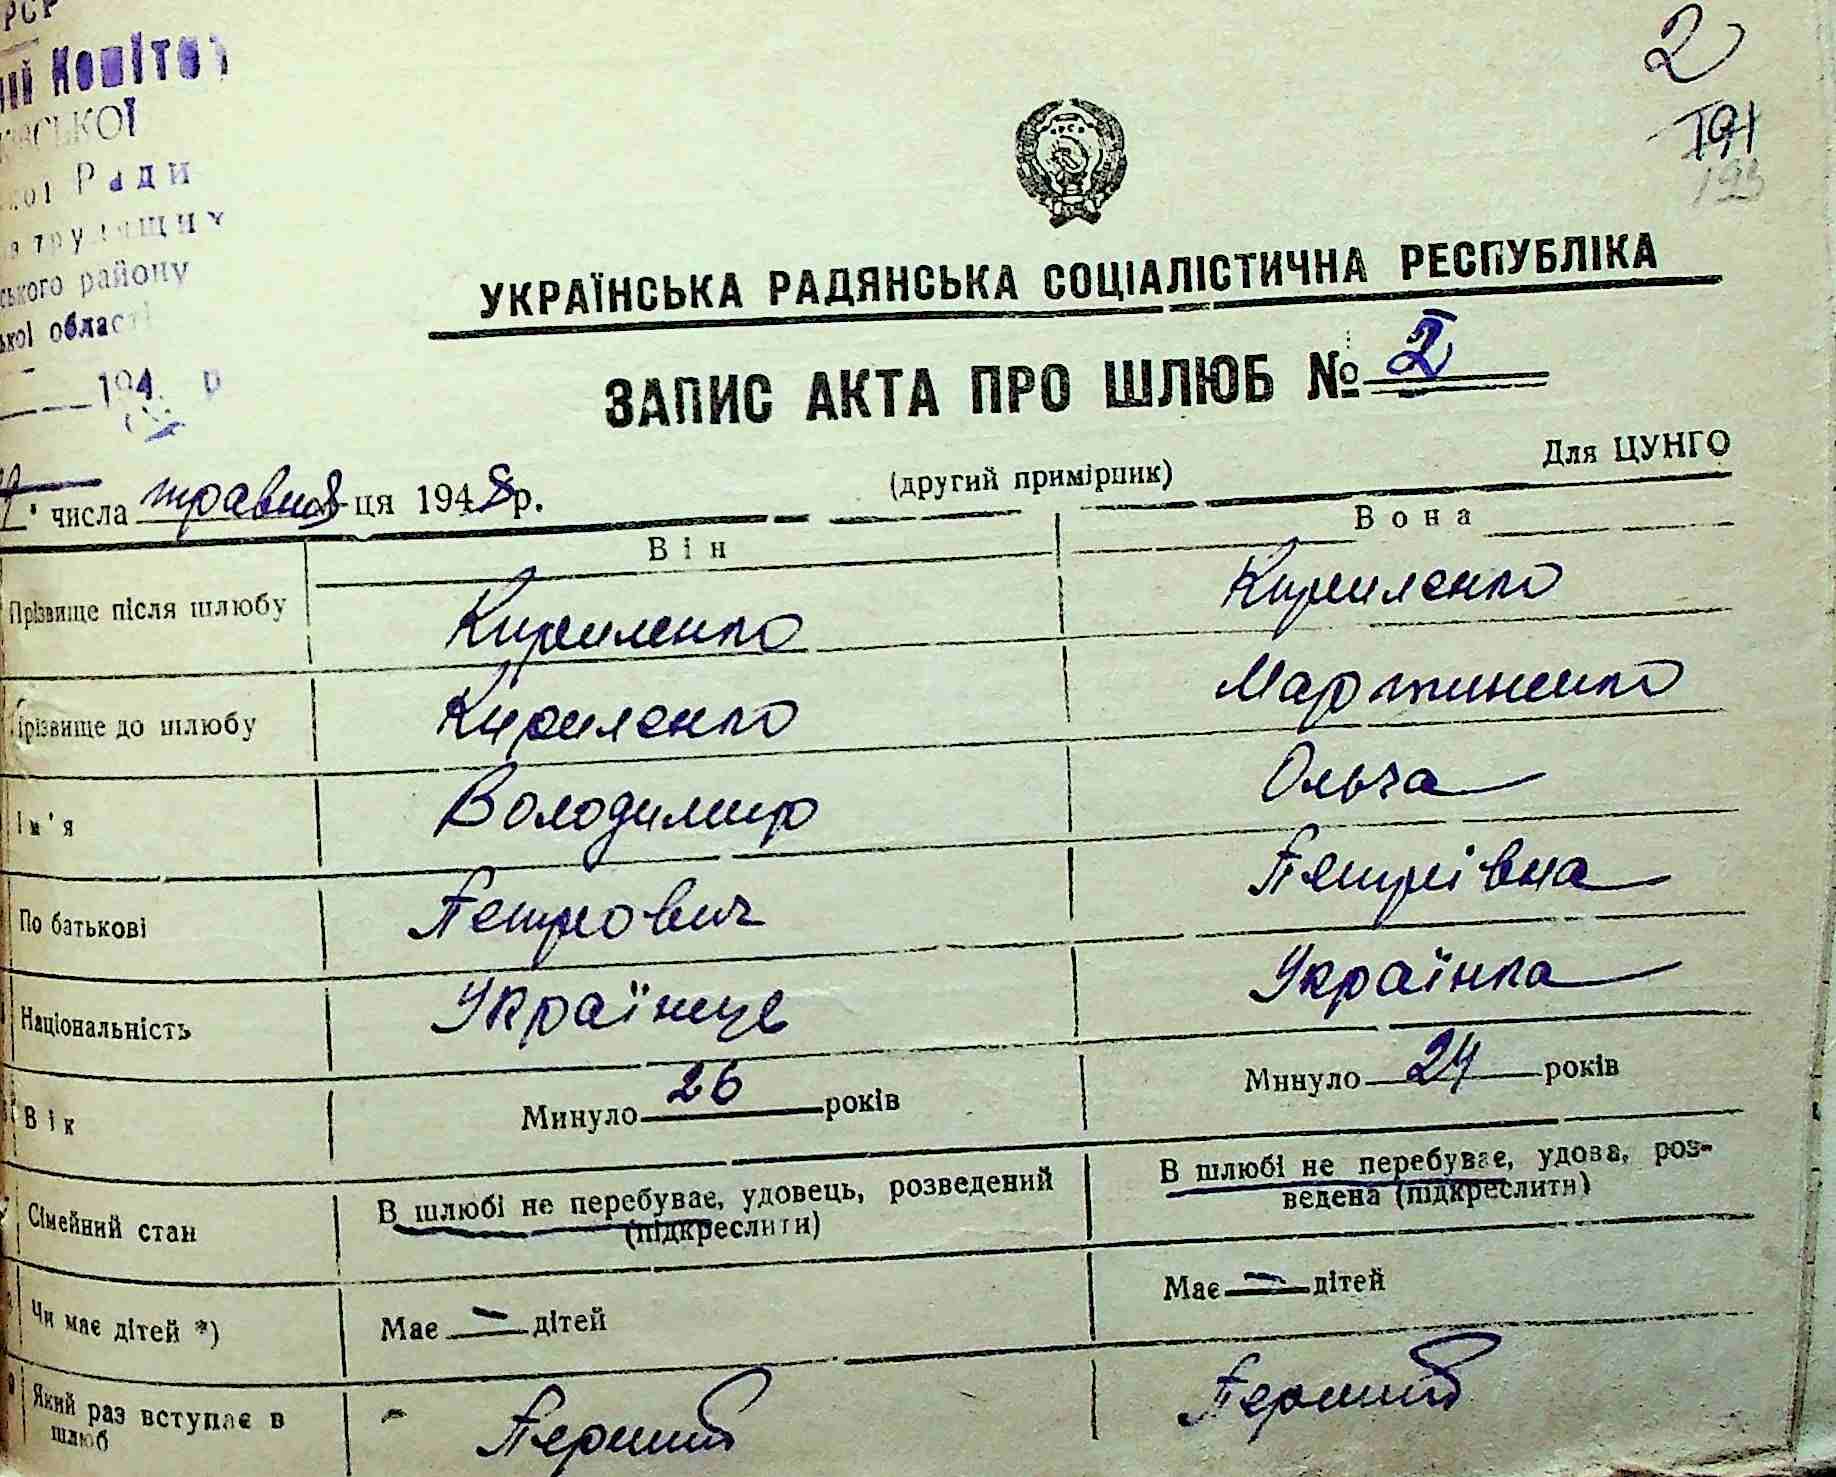 РСР
Комітет
2
191
193
Ради
трудящих
ського району
ької області
194 р
УКРАЇНСЬКА РАДЯНСЬКА СОЦІАЛІСТИЧНА РЕСПУБЛІКА
ЗАПИС АКТА ПРО ШЛЮБ № 2
(другий примірник) Для ЦУНГО
числа травня -ця 1948 р.
Він Вона
Прізвище після шлюбу Кириленко Кириленко
Прізвище до шлюбу Кириленко Мартиненко
Ім'я Володимир Ольга
По батькові Петрович Петрівна
Національність Українец Українка
Вік Минуло 26 років Минуло 24 років
Сімейний стан В шлюбі не перебуває, удовець, розведений В шлюбі не перебуває, удова, роз-
(підкреслити) ведена (підкреслити)
Чи має дітей *) Має — дітей Має — дітей
Який раз вступає в Перший Перший
шлюб